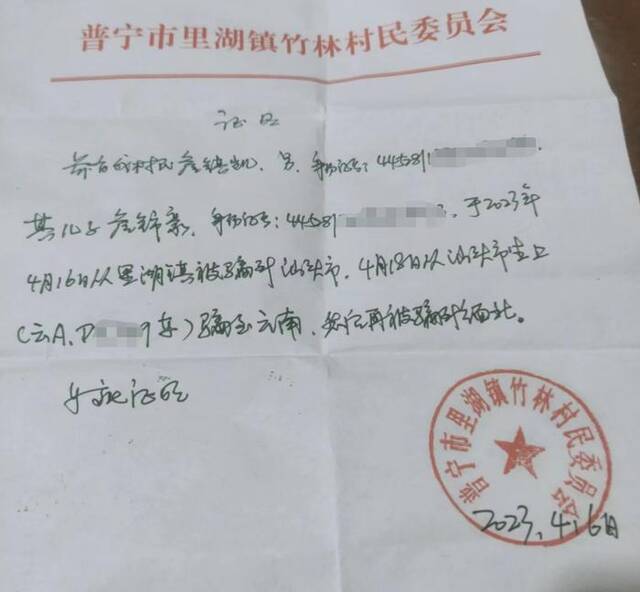 普宁市里湖镇竹林村民委员会
证明
兹有我村村民詹镇凯，男，身份证号：44581
其儿子詹锦豪，身份证号：44581 3，于2023年
4月16日从里湖镇被骗到汕头市，4月18日从汕头市坐上
（云A.D 9车）骗至云南，然后再被骗到缅北。
特此证明
普宁市里湖镇竹林村民委员会
2023.4.16日